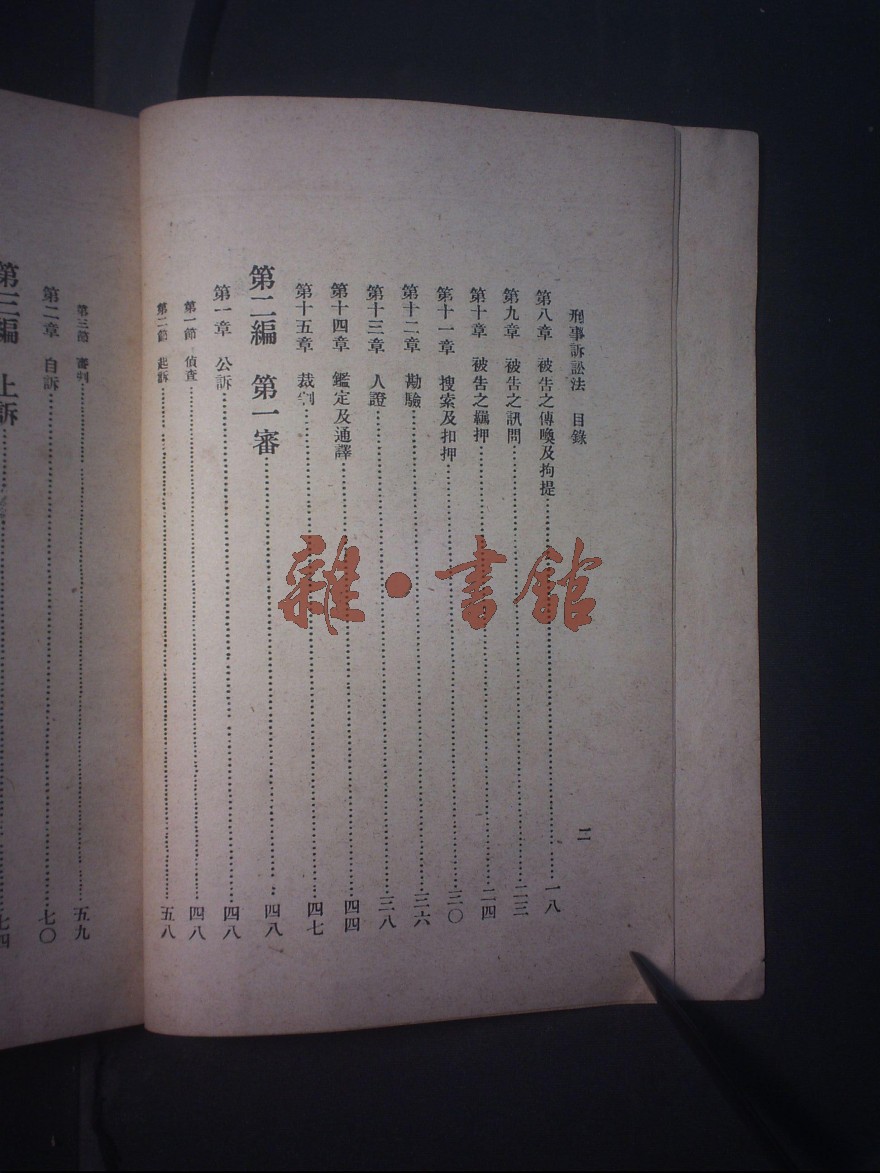 刑事訴訟法 目錄
二
第八章 被告之傳喚及拘提……一八
第九章 被告之訊問……二三
第十章 被告之羈押……二四
第十一章 搜索及扣押……三〇
第十二章 勘驗……三六
第十三章 人證……三八
第十四章 鑑定及通譯……四四
第十五章 裁判……四七
第二編 第一審……四八
第一章 公訴……四八
第一節 偵查……四八
第二節 起訴……五八
第三節 審判……五九
第二章 自訴……七〇
第三編 上訴……七四
雜・書館